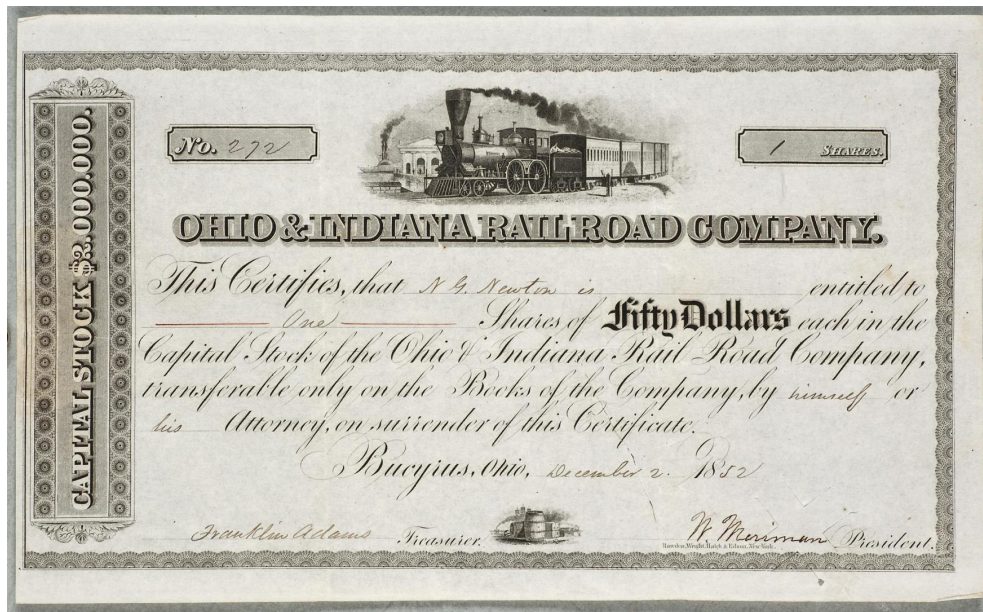 No. 272
1 SHARES.
CAPITAL STOCK $2,000,000.
OHIO & INDIANA RAIL ROAD COMPANY.
This Certifies, that N G. Newton is entitled to
One Shares of Fifty Dollars each in the
Capital Stock of the Ohio & Indiana Rail Road Company,
transferable only on the Books of the Company, by himself or
his Attorney, on surrender of this Certificate.
Bucyrus, Ohio, December 2. 1852
Franklin Adams Treasurer. W. Merriman President.
Rawdon, Wright, Hatch & Edson, New-York.